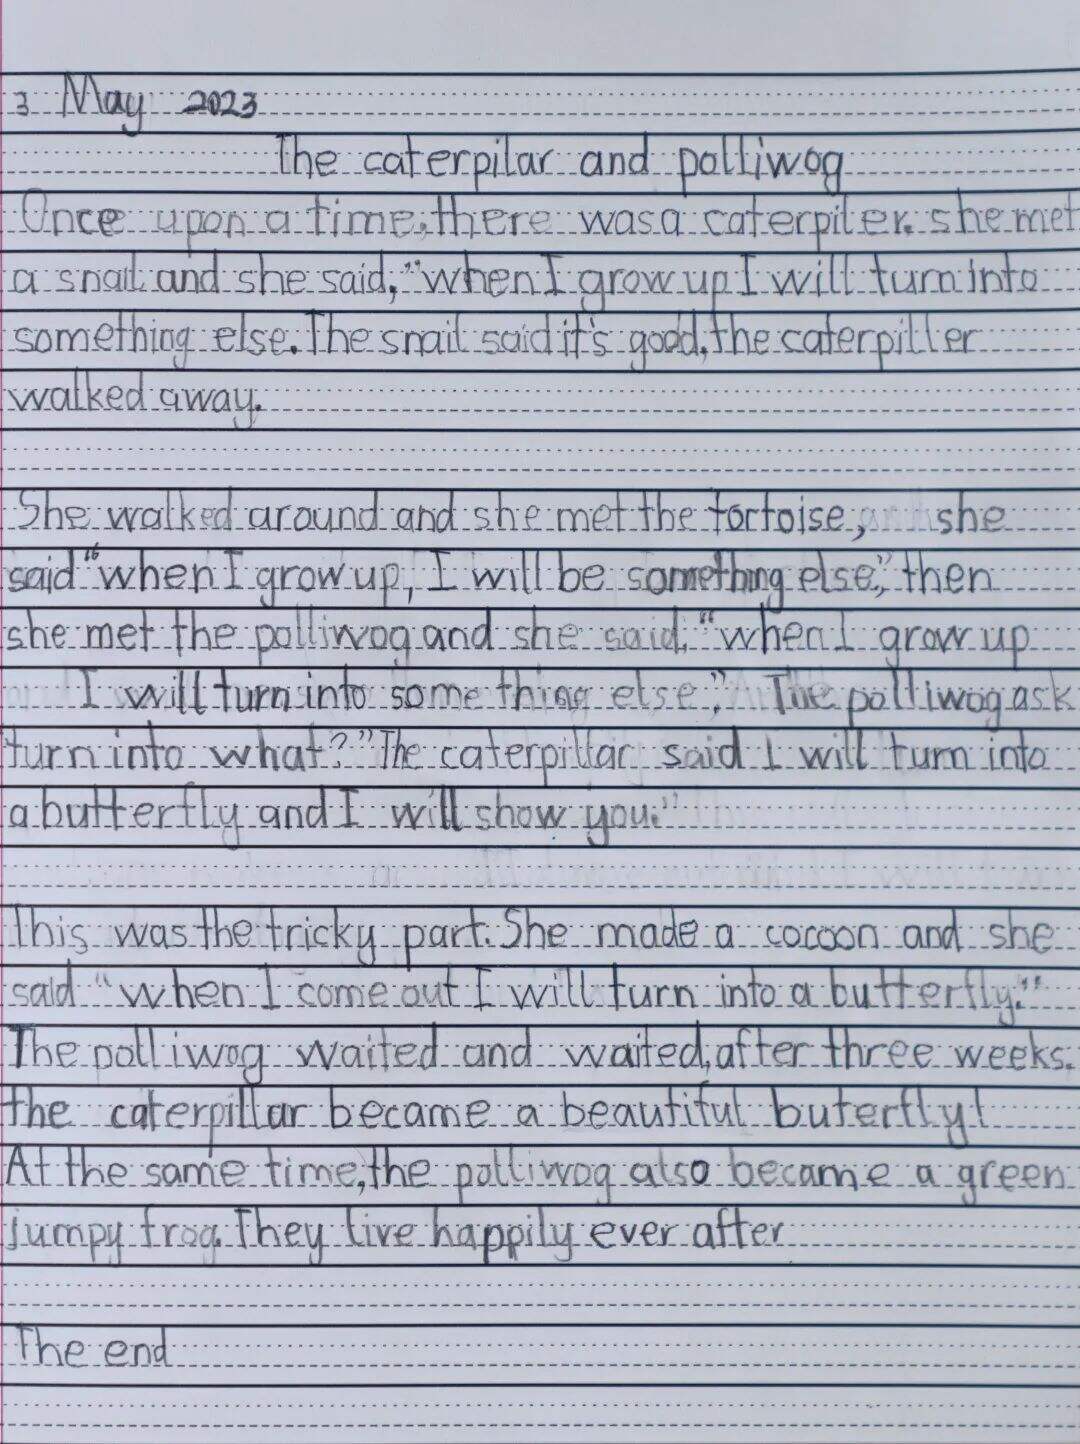 3 May 2023
The caterpilar and polliwog
Once upon a time, there was a caterpiler. she met
a snail and she said, "when I grow up I will turn into
something else. The snail said it's good. the caterpiller
walked away.
She walked around and she met the tortoise, she
said "when I grow up, I will be something else", then
she met the polliwog and she said, "when I grow up
I will turn into some thing else", The polliwog ask
turn into what?" The caterpillar said I will turn into
a butterfly and I will show you."
This was the tricky part. She made a cocoon and she
said "when I come out I will turn into a butterfly."
The polliwog waited and waited, after three weeks.
the caterpillar became a beautiful buterfly!
At the same time, the polliwog also became a green
jumpy frog. They live happily ever after
The end